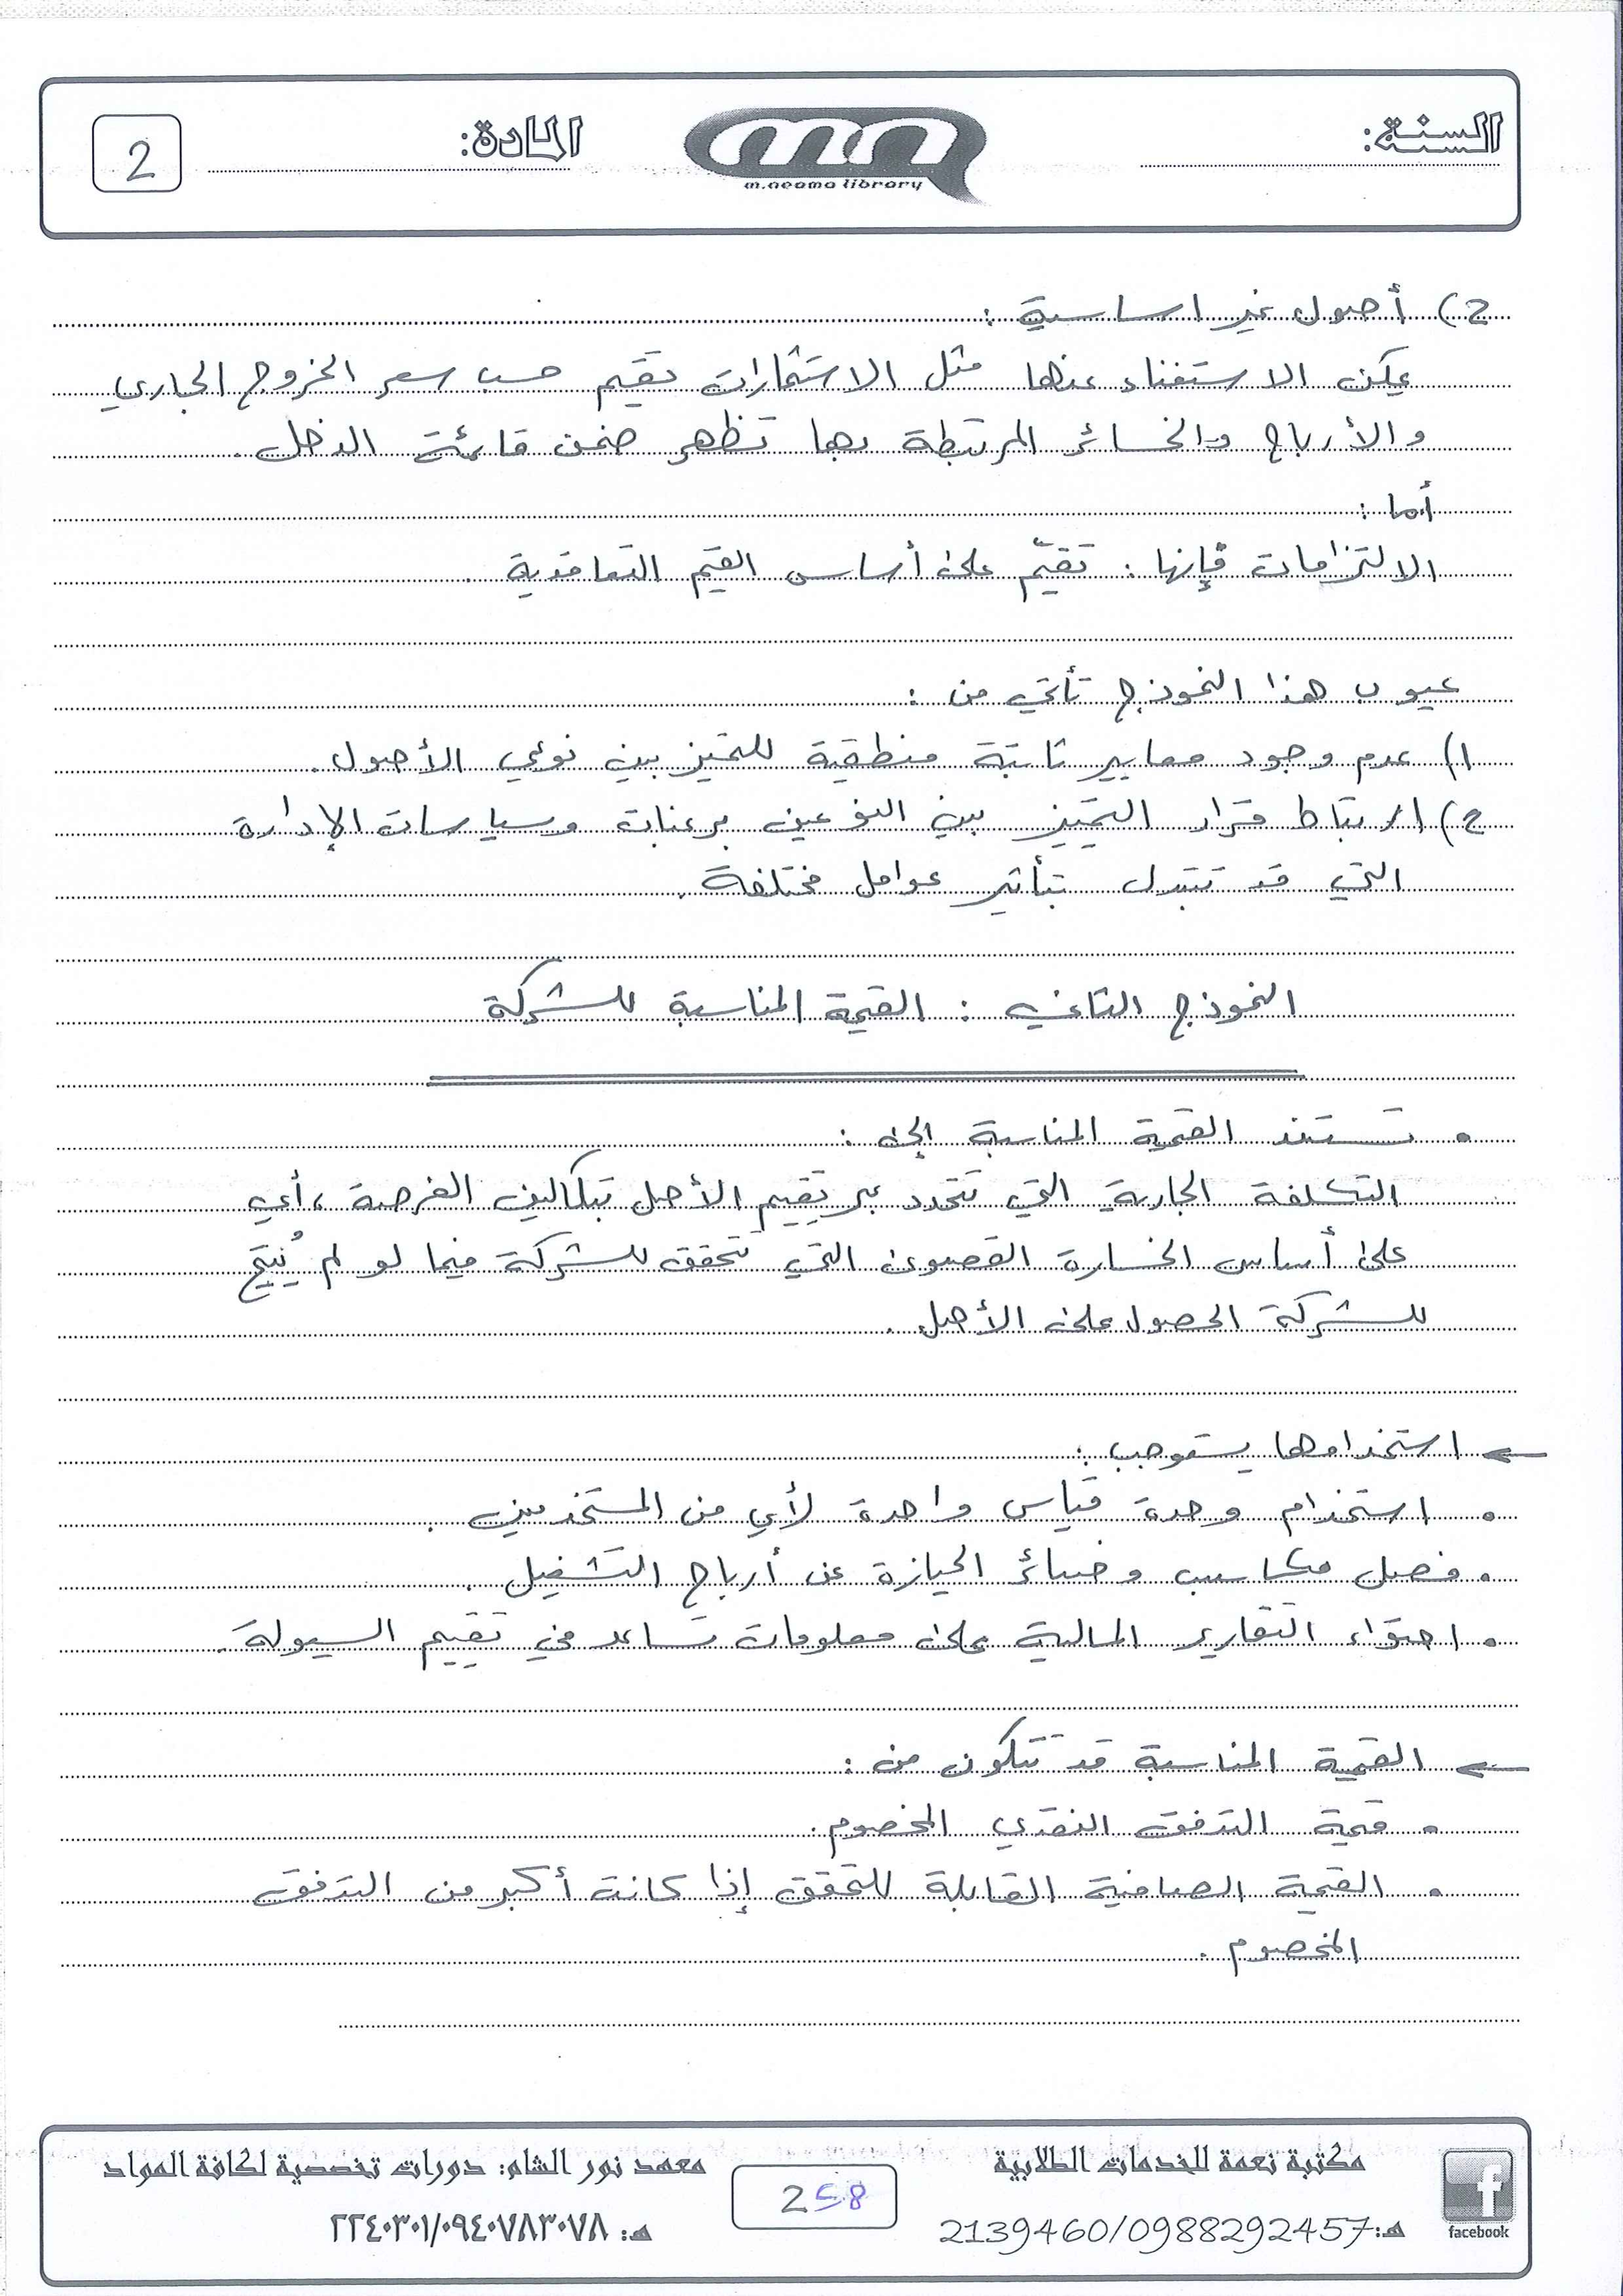 السنة:
mn
m.neama library
المادة:
2
2) أصول غير اساسية :
يمكن الاستغناء عنها مثل الاستثمارات تقيم حسب سعر الخروج الجاري
والأرباح والخسائر المرتبطة بها تظهر ضمن قائمة الدخل .
أما :
الالتزامات فإنها : تقيّم على أساس القيم التعاقدية .
عيوب هذا النموذج تأتي من :
1) عدم وجود معايير ثابتة منطقية للتمييز بين نوعي الأصول .
2) ارتباط قرار التمييز بين النوعين برغبات وسياسات الإدارة
التي قد تتبدل بتأثير عوامل مختلفة .
النموذج الثاني : القيمة المناسبة للشركة
• تستند القيمة المناسبة إلى :
التكلفة الجارية التي تتحدد عبر تقييم الأصل بتكاليف الفرصة ، أي
على أساس الخسارة القصوى التي تتحقق للشركة فيما لو لم يُتح
للشركة الحصول على الأصل .
← استخدامها يستوجب :
• استخدام وحدة قياس واحدة لأي من المستخدمين .
• فصل مكاسب وخسائر الحيازة عن أرباح التشغيل .
• احتواء التقارير المالية على معلومات تساعد في تقييم السيولة .
← القيمة المناسبة قد تتكون من :
• قيمة التدفق النقدي المخصوم .
• القيمة الصافية القابلة للتحقق إذا كانت أكبر من التدفق
المخصوم .
مكتبة نعمة للخدمات الطلابية
هـ: 2139460/0988292457
facebook
258
معهد نور الشام: دورات تخصصية لكافة المواد
هـ: ٢٢٤٠٣٠١/٠٩٤٠٧٨٣٠٧٨